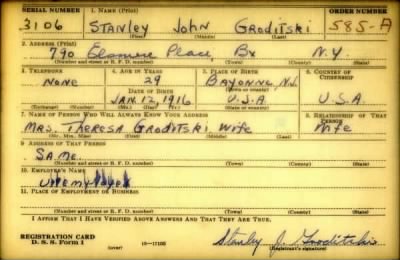 SERIAL NUMBER 1. NAME (Print) ORDER NUMBER
3106 STANLEY John Groditski 585-A
(First) (Middle) (Last)
2. ADDRESS (Print)
790 Elsmere Place, Bx N.Y.
(Number and street or R. F. D. number) (Town) (County) (State)
3. TELEPHONE 4. AGE IN YEARS 5. PLACE OF BIRTH 6. COUNTRY OF CITIZENSHIP
None 29 Bayonne, N.J.
DATE OF BIRTH (Town or county)
JAN. 12, 1916 U.S.A U.S.A.
(Exchange) (Number) (Mo.) (Day) (Yr.) (State or country)
7. NAME OF PERSON WHO WILL ALWAYS KNOW YOUR ADDRESS 8. RELATIONSHIP OF THAT PERSON
Mrs. Theresa Groditski Wife Wife
(Mr., Mrs., Miss) (First) (Middle) (Last)
9. ADDRESS OF THAT PERSON
SAME.
(Number and street or R. F. D. number) (Town) (County) (State)
10. EMPLOYER'S NAME
11. PLACE OF EMPLOYMENT OR BUSINESS
(Number and street or R. F. D. number) (Town) (County) (State)
I AFFIRM THAT I HAVE VERIFIED ABOVE ANSWERS AND THAT THEY ARE TRUE.
REGISTRATION CARD
D. S. S. Form 1 (over) 16—17105 Stanley J. Groditski
(Registrant's signature)